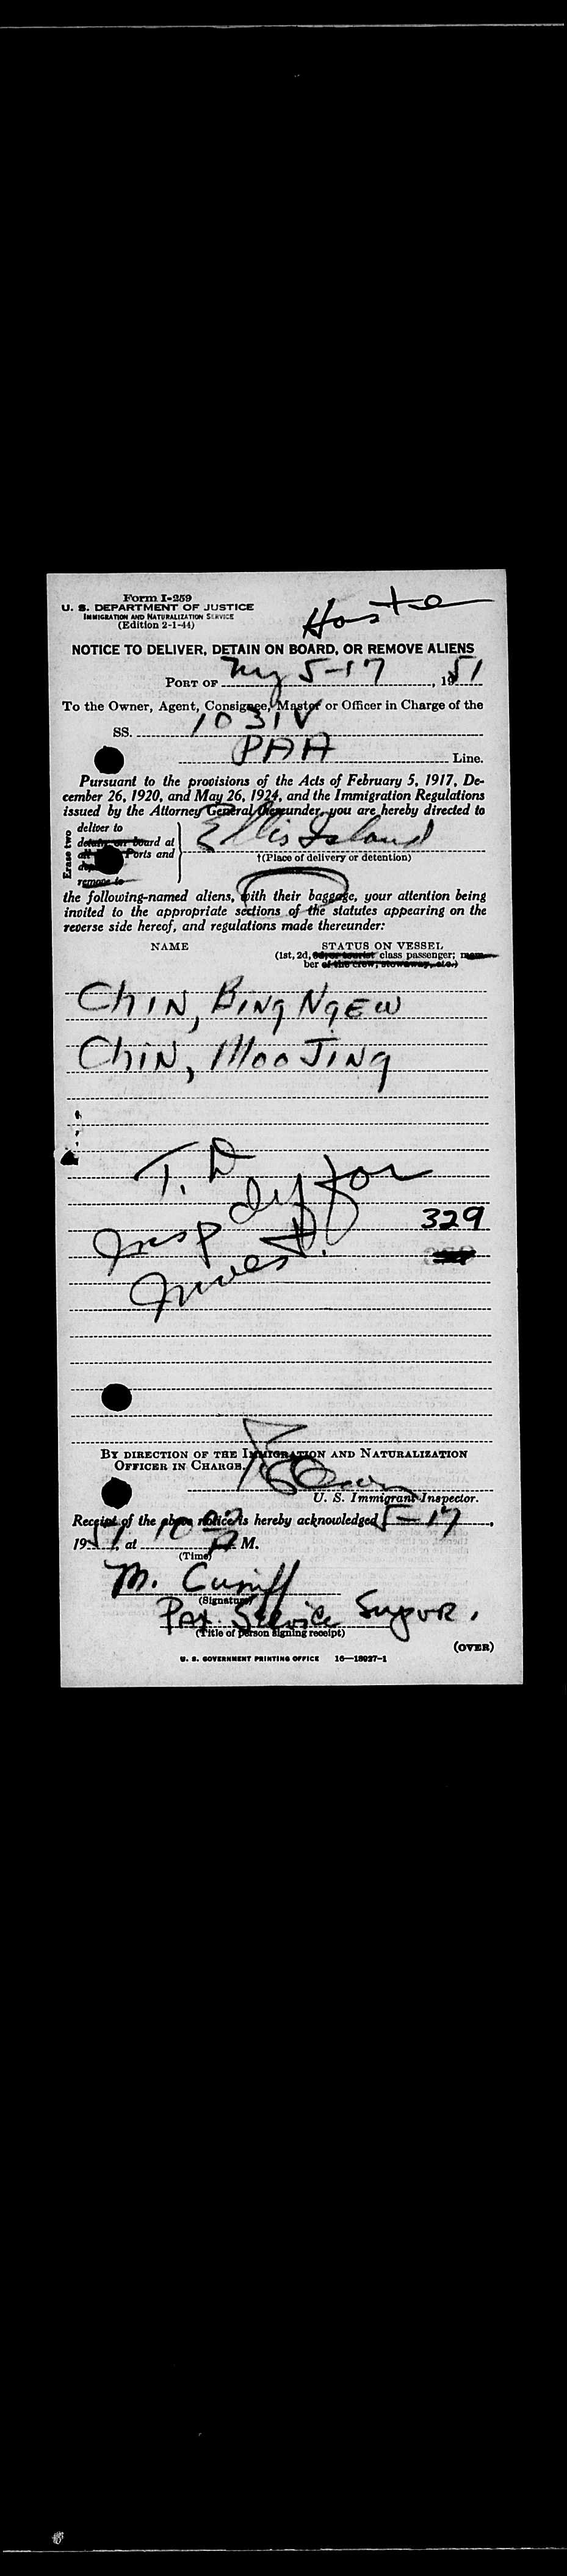 Form I-259
U. S. DEPARTMENT OF JUSTICE
IMMIGRATION AND NATURALIZATION SERVICE
(Edition 2-1-44)
NOTICE TO DELIVER, DETAIN ON BOARD, OR REMOVE ALIENS
PORT OF ny 5-17, 1951
To the Owner, Agent, Consignee, Master or Officer in Charge of the
SS. 1031V
PAA Line.
Pursuant to the provisions of the Acts of February 5, 1917, De-
cember 26, 1920, and May 26, 1924, and the Immigration Regulations
issued by the Attorney General thereunder, you are hereby directed to
Erase two
deliver to
detain on board at
Ports and
remove to
Ellis Island
†(Place of delivery or detention)
the following-named aliens, with their baggage, your attention being
invited to the appropriate sections of the statutes appearing on the
reverse side hereof, and regulations made thereunder:
NAME STATUS ON VESSEL
(1st, 2d, 3d, or tourist class passenger; mem-
ber of the crew, stowaway, etc.)
Chin, Bing Ngew
Chin, Moo Jing
T. D
Insp for
329
Invest.
BY DIRECTION OF THE IMMIGRATION AND NATURALIZATION
OFFICER IN CHARGE.
U. S. Immigrant Inspector.
Receipt of the above notice is hereby acknowledged 5-17,
1951, at 10 M.
(Time)
M. Cuniff
(Signature)
Pax. Service Supvr.
(Title of person signing receipt)
(OVER)
U. S. GOVERNMENT PRINTING OFFICE 16—18927-1